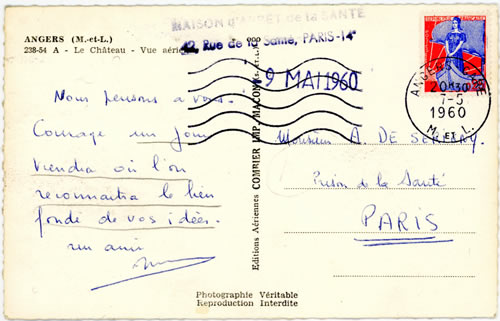 ANGERS (M.-et-L.)
238-54 A - Le Château - Vue aérienne
MAISON d'ARRET de la SANTE
42, Rue de la Santé, PARIS-14
9 MAI 1960
ANGERS GARE
20H30
7-5
1960
M. ET L.
Nous pensons à vous!
Courage un jour
viendra où l'on
reconnaitra le bien
fondé de vos idées.
un ami
Editions Aériennes COMBIER IMP. MACON
Monsieur A. DE SERIGNY
Prison de la Santé
PARIS
Photographie Véritable
Reproduction Interdite